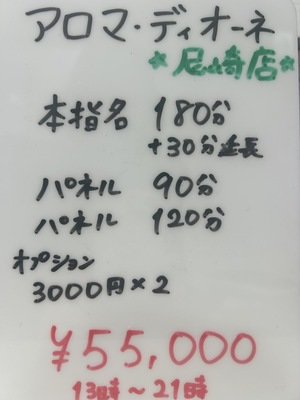 アロマ・ディオーネ
★尼崎店★
本指名 180分
+30分延長
パネル 90分
パネル 120分
オプション
3000円×2
¥55,000
13時～21時